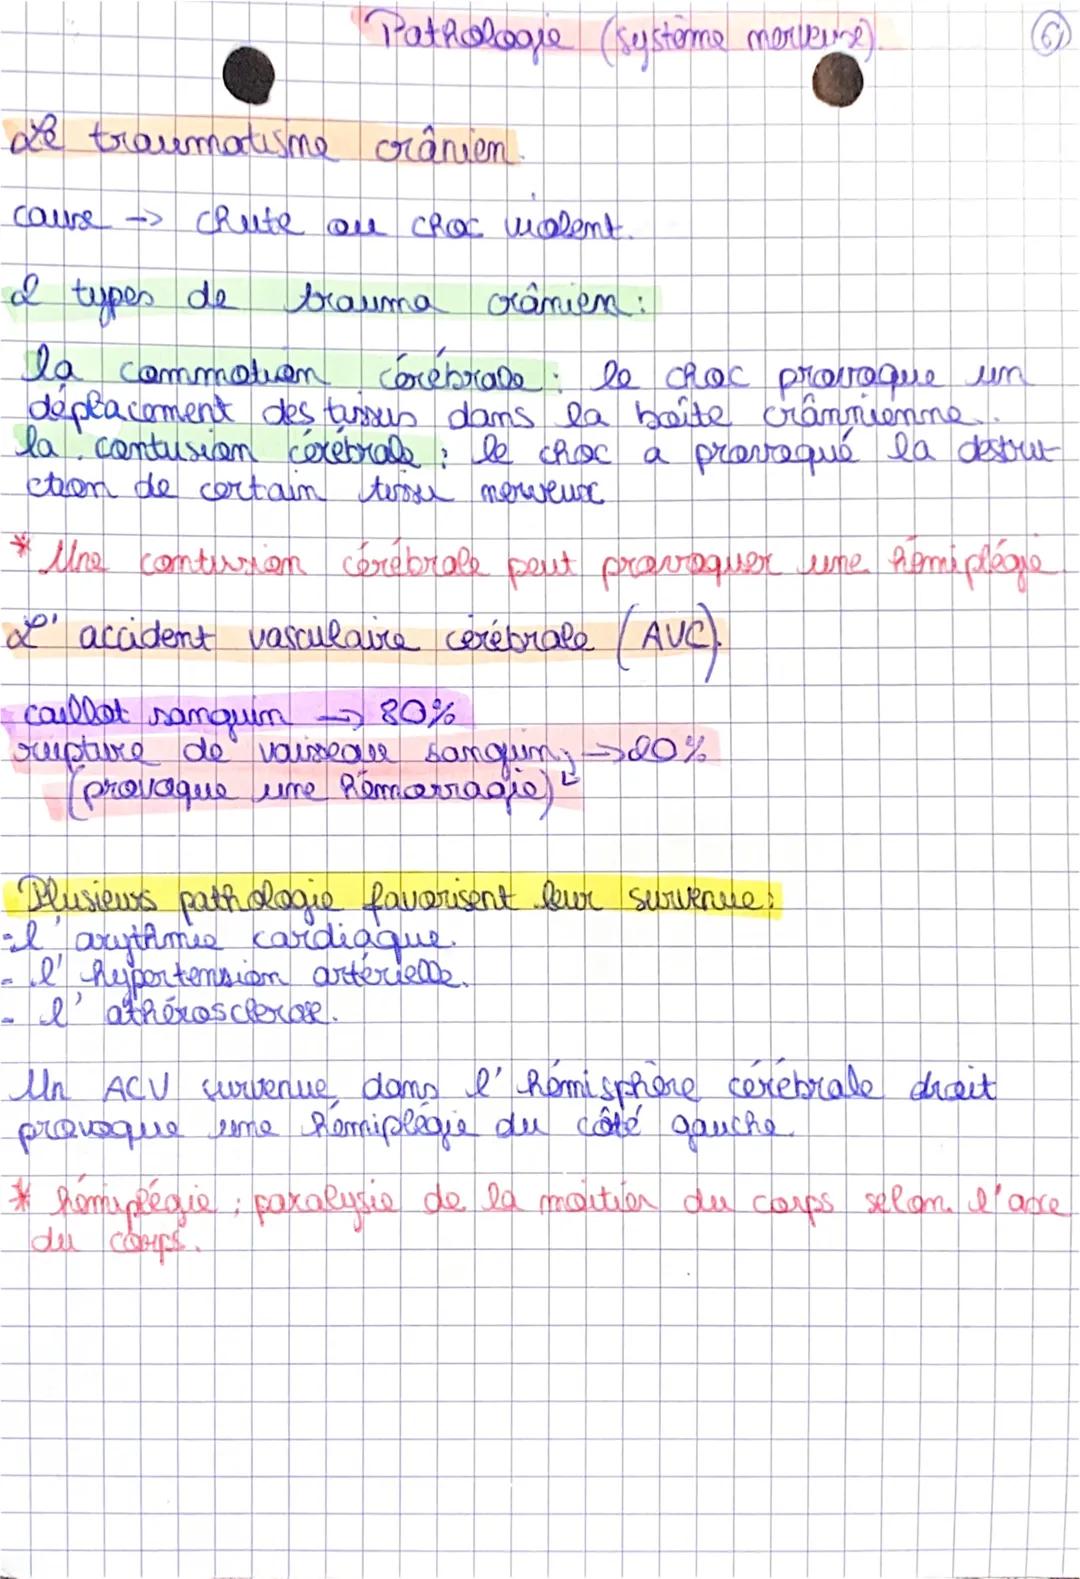 Pathologie (système nerveux). 6
Le traumatisme crânien.
cause -> chute ou choc violent.
2 types de trauma crânien :
la commotion cérébrale : le choc provoque un
déplacement des tissus dans la boîte crânnienne.
la contusion cérébrale : le choc a provoqué la destrut
ction de certain tissu nerveux
* Une contusion cérébrale peut provoquer une hémiplégie.
L'accident vasculaire cérébrale (AVC).
caillot sanguin -> 80%
rupture de vaisseau sanguin; -> 20%
(provoque une hémorragie)
Plusieurs pathologie favorisent leur survenue :
- l'arythmie cardiaque.
- l'hypertension artérielle.
- l'athérosclérose.
Un ACV survenue dans l'hémisphère cérébrale droit
provoque une hémiplégie du côté gauche.
* hémiplégie ; paralysie de la moitier du corps selon l'axe
du corps.